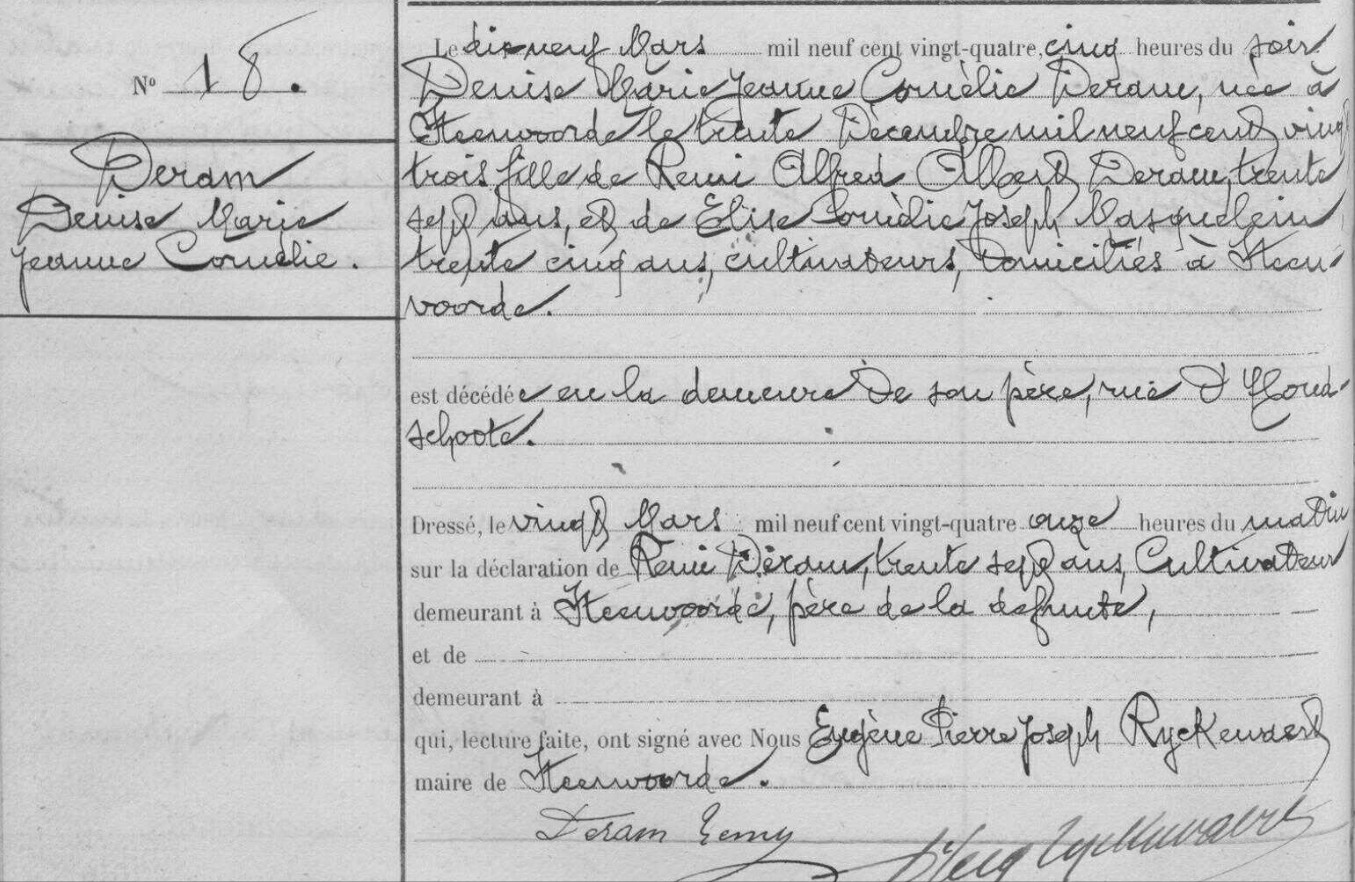 N° 18.
Deram
Denise Marie
Jeanne Cornélie.
Le dix neuf Mars mil neuf cent vingt-quatre, cinq heures du soir
Denise Marie Jeanne Cornélie Deram, née à
Steenvoorde le trente Décembre mil neuf cent vingt
trois fille de Remi Alfred Albert Deram, trente
sept ans, et de Élise Cornélie Joseph Masquelein
trente cinq ans, cultivateurs, domiciliés à Steen-
voorde.
est décédée en la demeure de son père, rue d'Hond-
schoote.
Dressé, le vingt Mars mil neuf cent vingt-quatre onze heures du matin
sur la déclaration de Remi Deram, trente sept ans, Cultivateur
demeurant à Steenvoorde, père de la defunte,
et de
demeurant à
qui, lecture faite, ont signé avec Nous Eugène Pierre Joseph Ryckewaert
maire de Steenvoorde.
Deram Remy
Ryckewaert